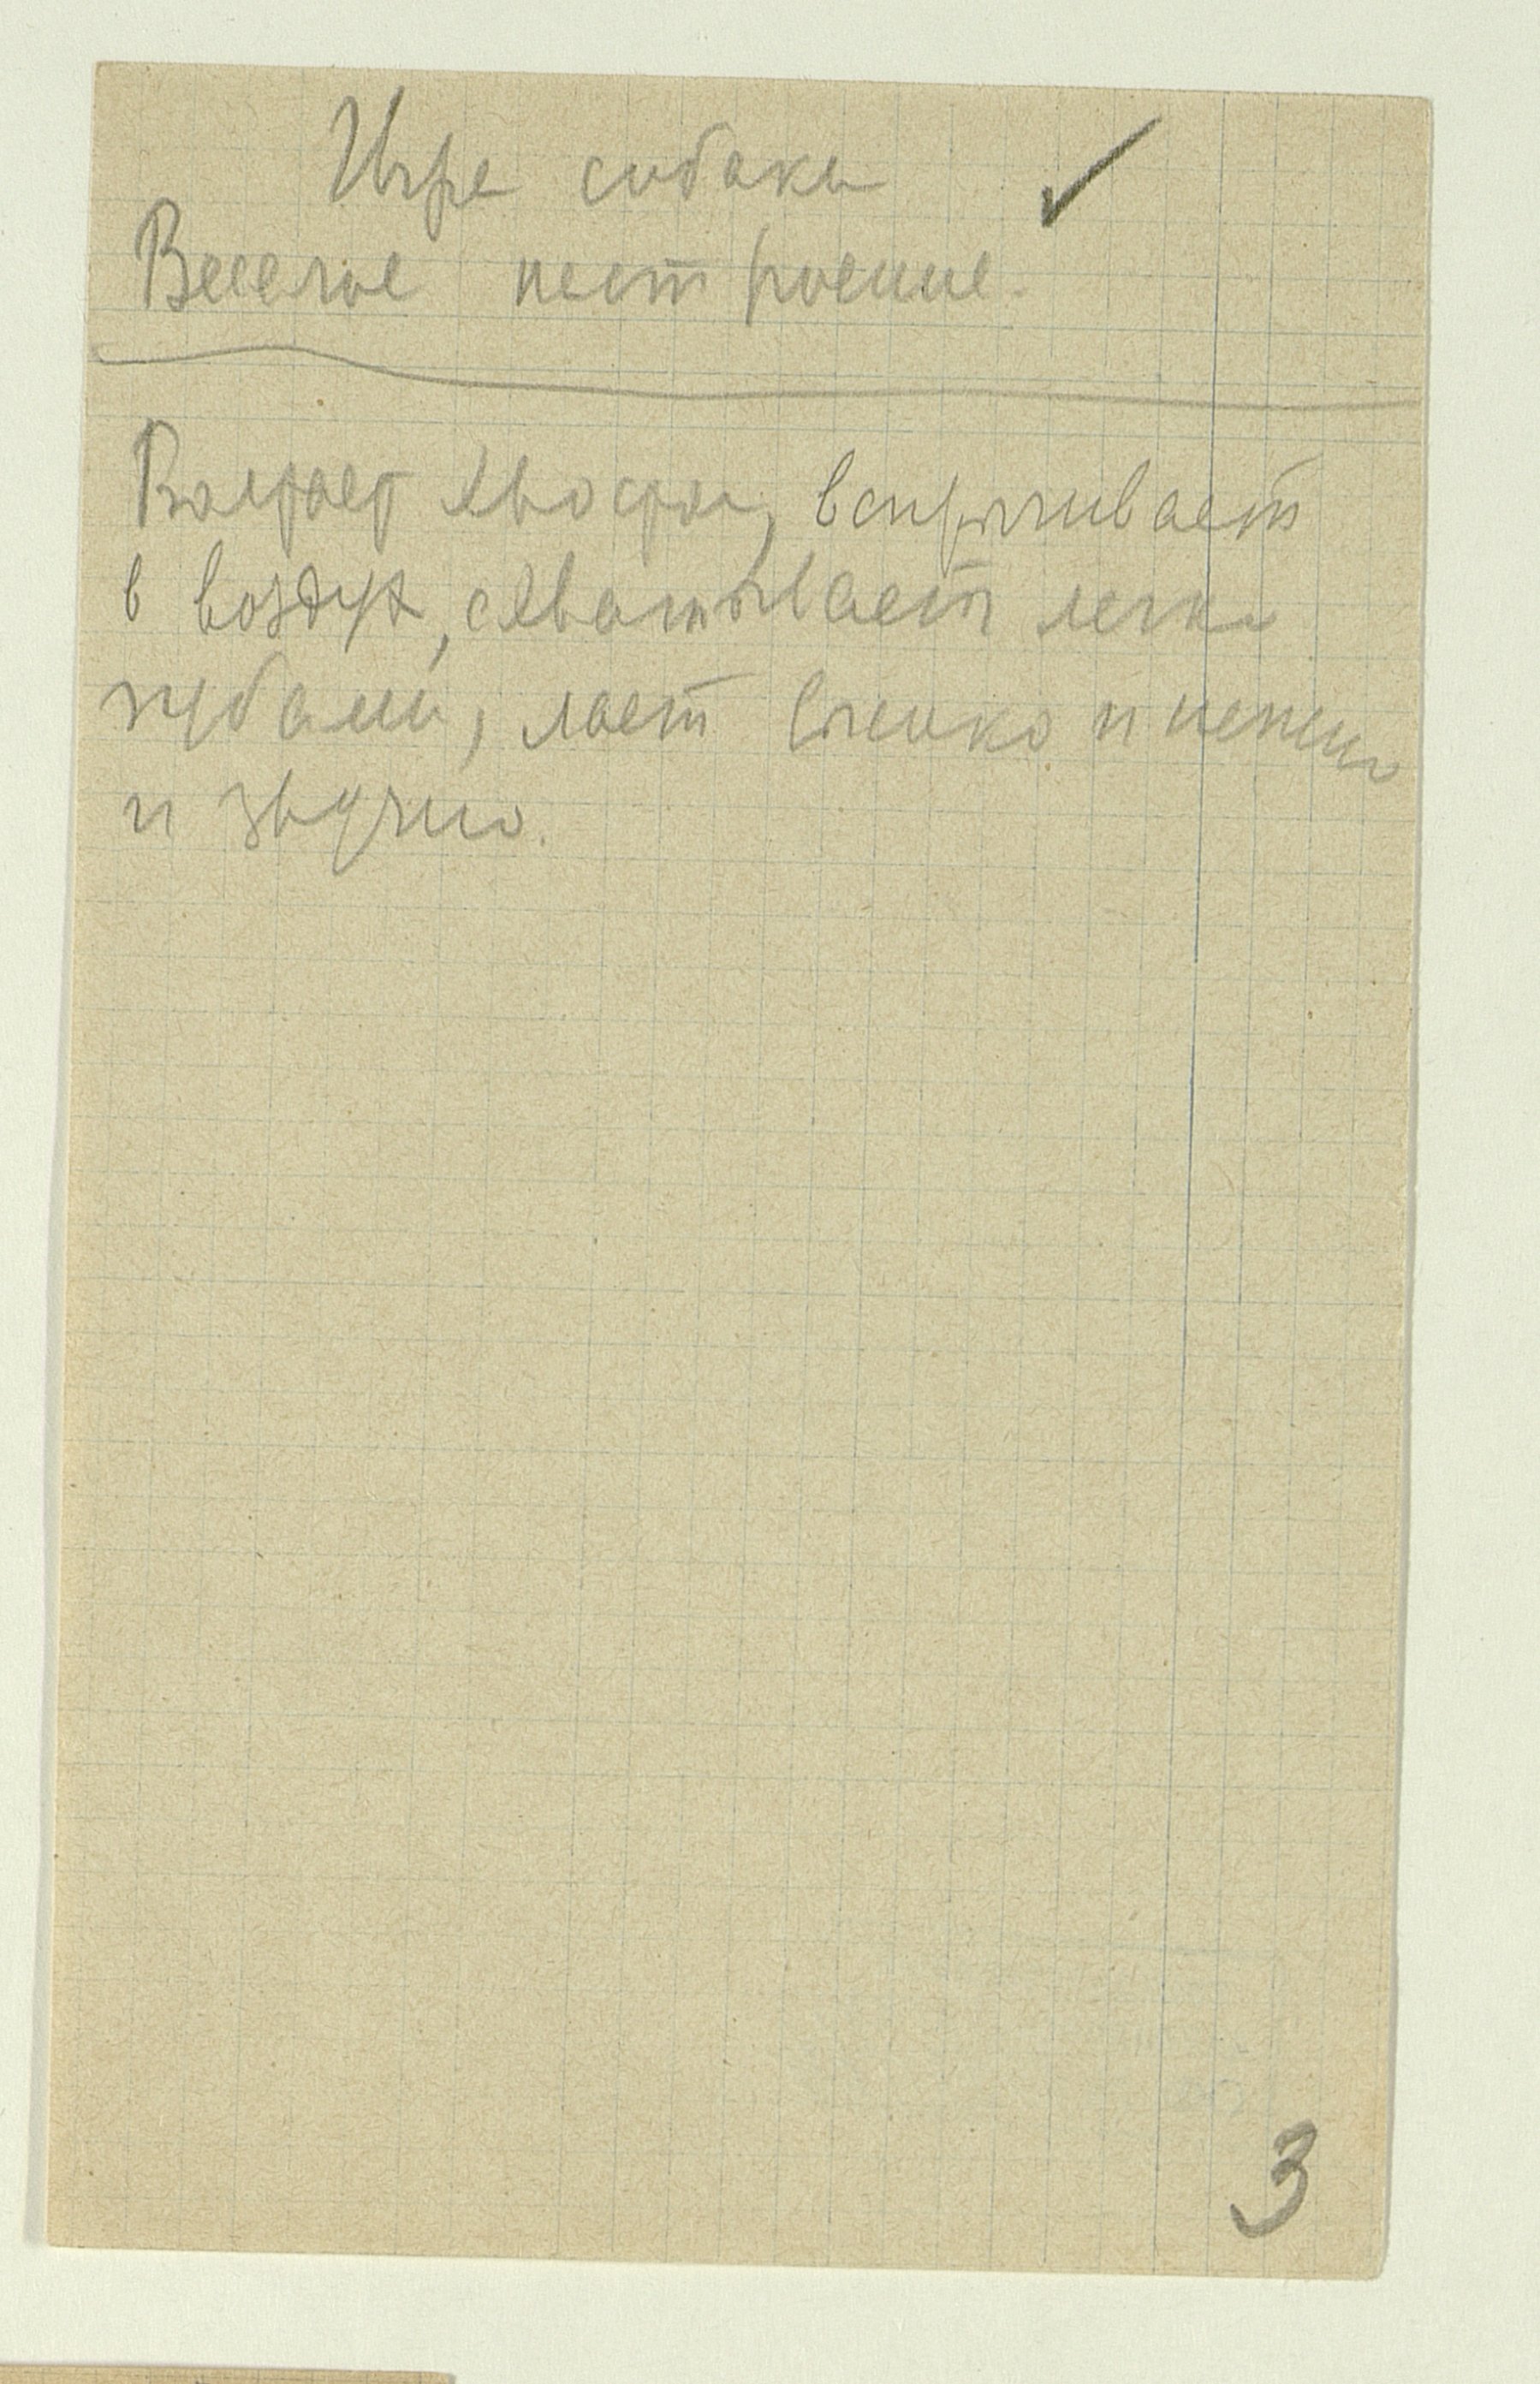 Игра собаки ✓
Веселое настроение.
Виляет хвостом, вспрыгивает
в воздух, схватывает легко
зубами, лает высоко и нежно
и звучно.
3